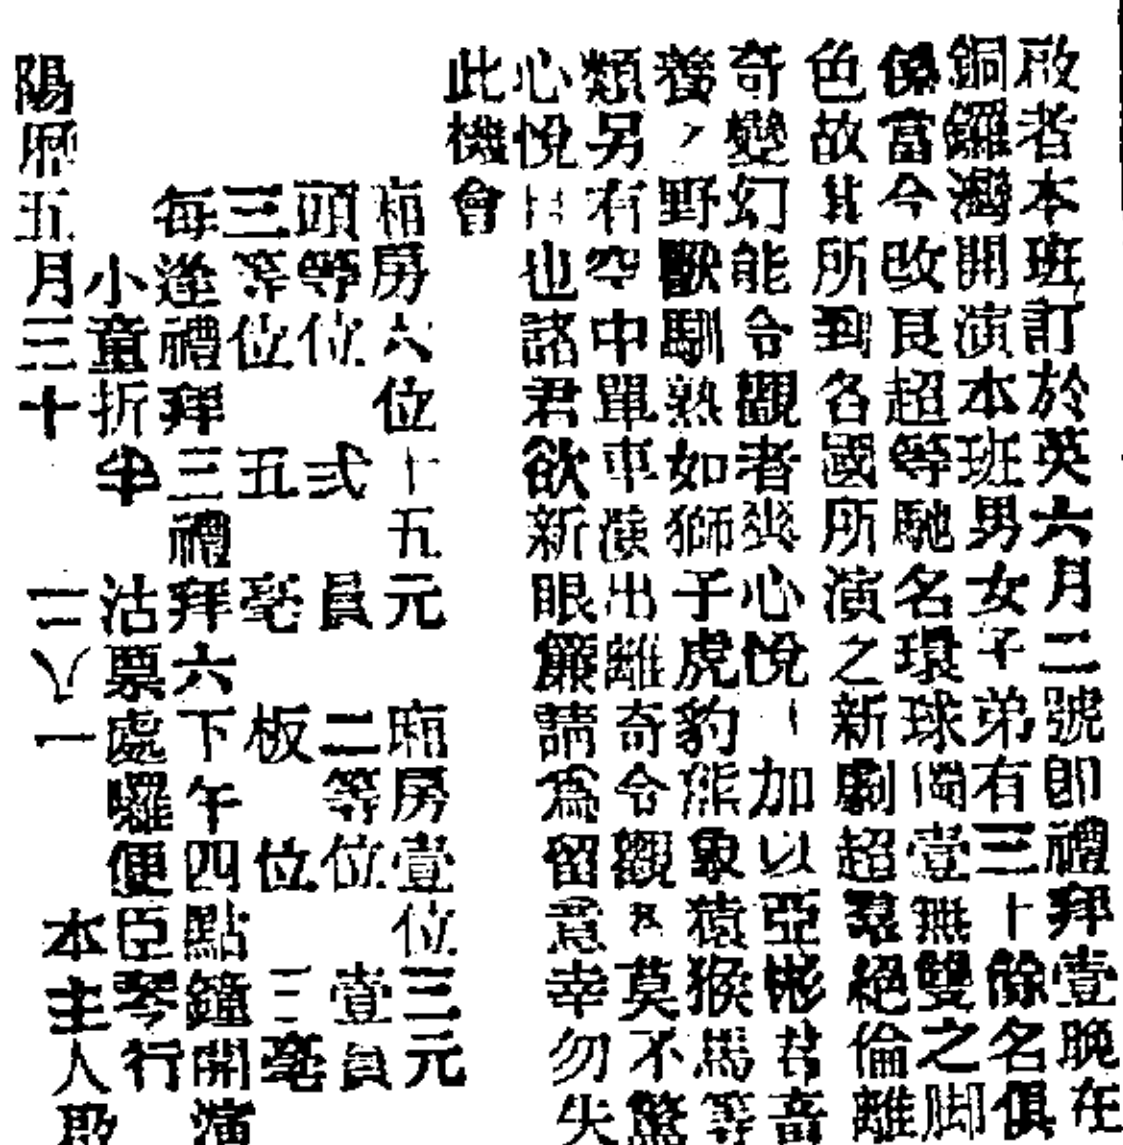 啟者本班訂於英六月二號即禮拜壹晚在
銅鑼灣開演本班男女子弟有三十餘名俱
係當今改良超等馳名環球獨壹無雙之脚
色故其所到各國所演之新劇超羣絕倫離
奇變幻能令觀者爽心悅加以亞彬君音
養野獸馴熟如獅子虎豹熊象猿猴馬等
類另有空中單車演出離奇令觀莫不驚
心悅目也諸君欲新眼簾請為留意幸勿失
此機會
廂房六位十五元 廂房壹位三元
頭等位 弍員 二等位 壹員
三等位 五毫 板位 三毫
每逢禮拜三禮拜六下午四點鐘開演
小童折半 沽票處囉便臣琴行
陽曆五月三十 一二八一 本主人啟